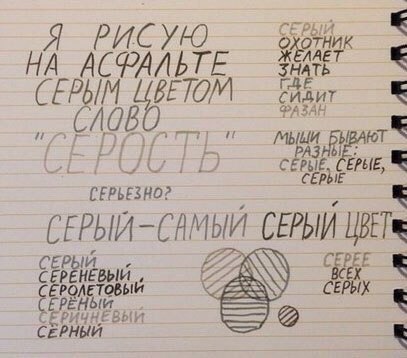 Я РИСУЮ
НА АСФАЛЬТЕ
СЕРЫМ ЦВЕТОМ
СЛОВО
"СЕРОСТЬ"
СЕРЫЙ
ОХОТНИК
ЖЕЛАЕТ
ЗНАТЬ
ГДЕ
СИДИТ
ФАЗАН
МЫШИ БЫВАЮТ
РАЗНЫЕ:
СЕРЫЕ, СЕРЫЕ,
СЕРЫЕ
СЕРЬЕЗНО?
СЕРЫЙ—САМЫЙ СЕРЫЙ ЦВЕТ
СЕРЫЙ
СЕРЕНЕВЫЙ
СЕРОЛЕТОВЫЙ
СЕРЁНЫЙ
СЕРИЧНЕВЫЙ
СЁРНЫЙ
СЕРЕЕ
ВСЕХ
СЕРЫХ